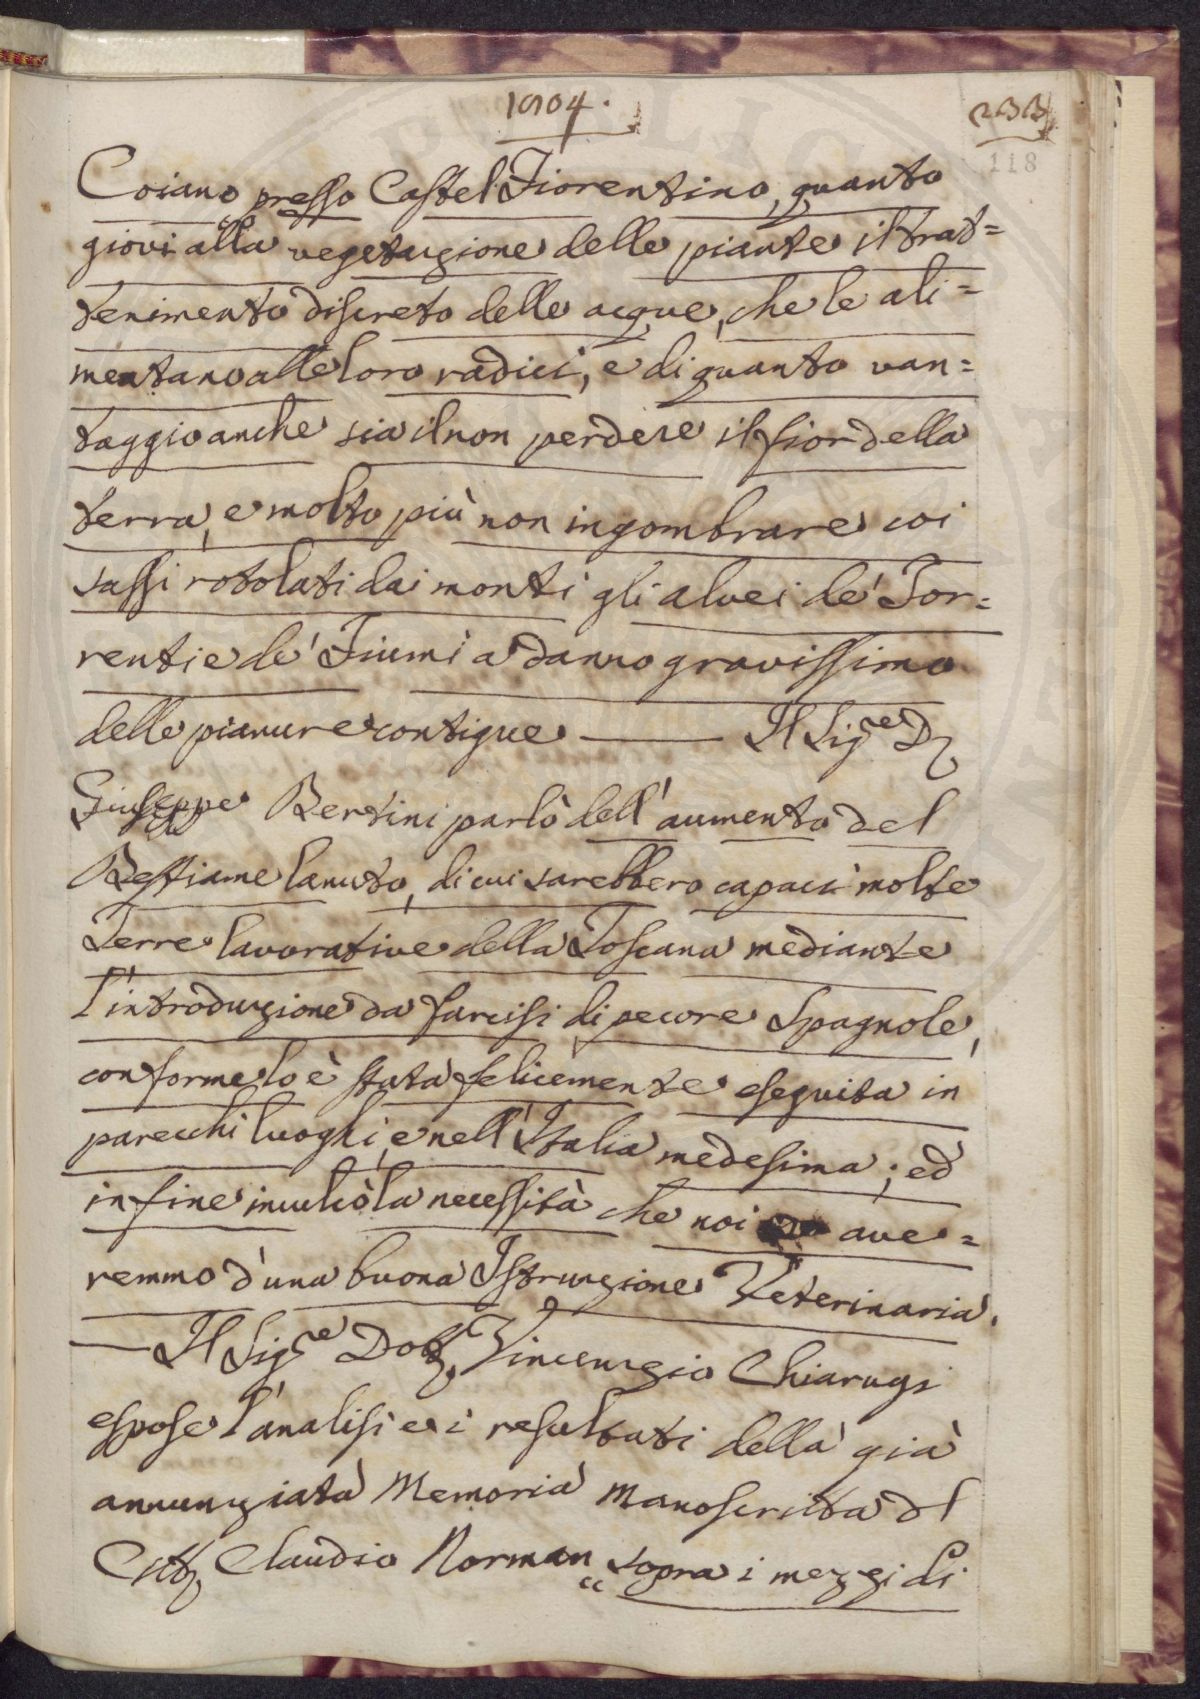 1804.
233
118
Coiano presso Castel Fiorentino, quanto
giovi alla vegetazione delle piante il trat=
tenimento discreto delle acque, che le ali=
mentano alle loro radici, e di quanto van=
taggio anche sia il non perdere il fior della
terra, e molto più non ingombrare coi
sassi rotolati dai monti gli alvei de' Tor=
renti e de' Fiumi a danno gravissimo
delle pianure contigue —— Il Sig.re D.
Giuseppe Bertini parlò dell'aumento del
Bestiame lanuto, di cui sarebbero capaci molte
Terre lavorative della Toscana mediante
l'introduzione da farcisi di pecore Spagnole,
conforme lo è stata felicemente eseguita in
parecchi luoghi, e nell'Italia medesima; ed
infine inculcò la necessità che noi ave=
remmo d'una buona Istruzione Veterinaria.
— Il Sig.re Dott. Vincenzio Chiarugi
espose l'analisi e i resultati della già
annunziata Memoria Manoscritta del
Citt. Claudio Norman „ sopra i mezzi di